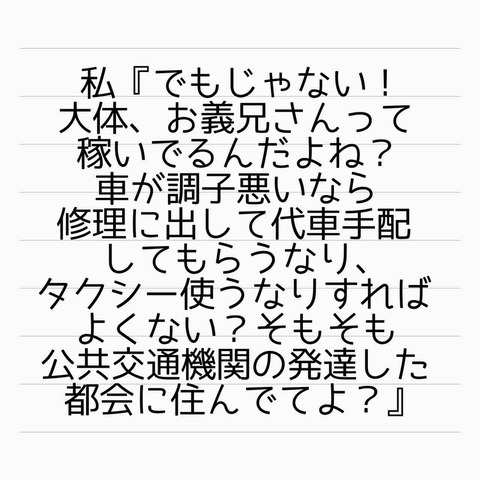 私『でもじゃない！
大体、お義兄さんって
稼いでるんだよね？
車が調子悪いなら
修理に出して代車手配
してもらうなり、
タクシー使うなりすれば
よくない？そもそも
公共交通機関の発達した
都会に住んでてよ？』